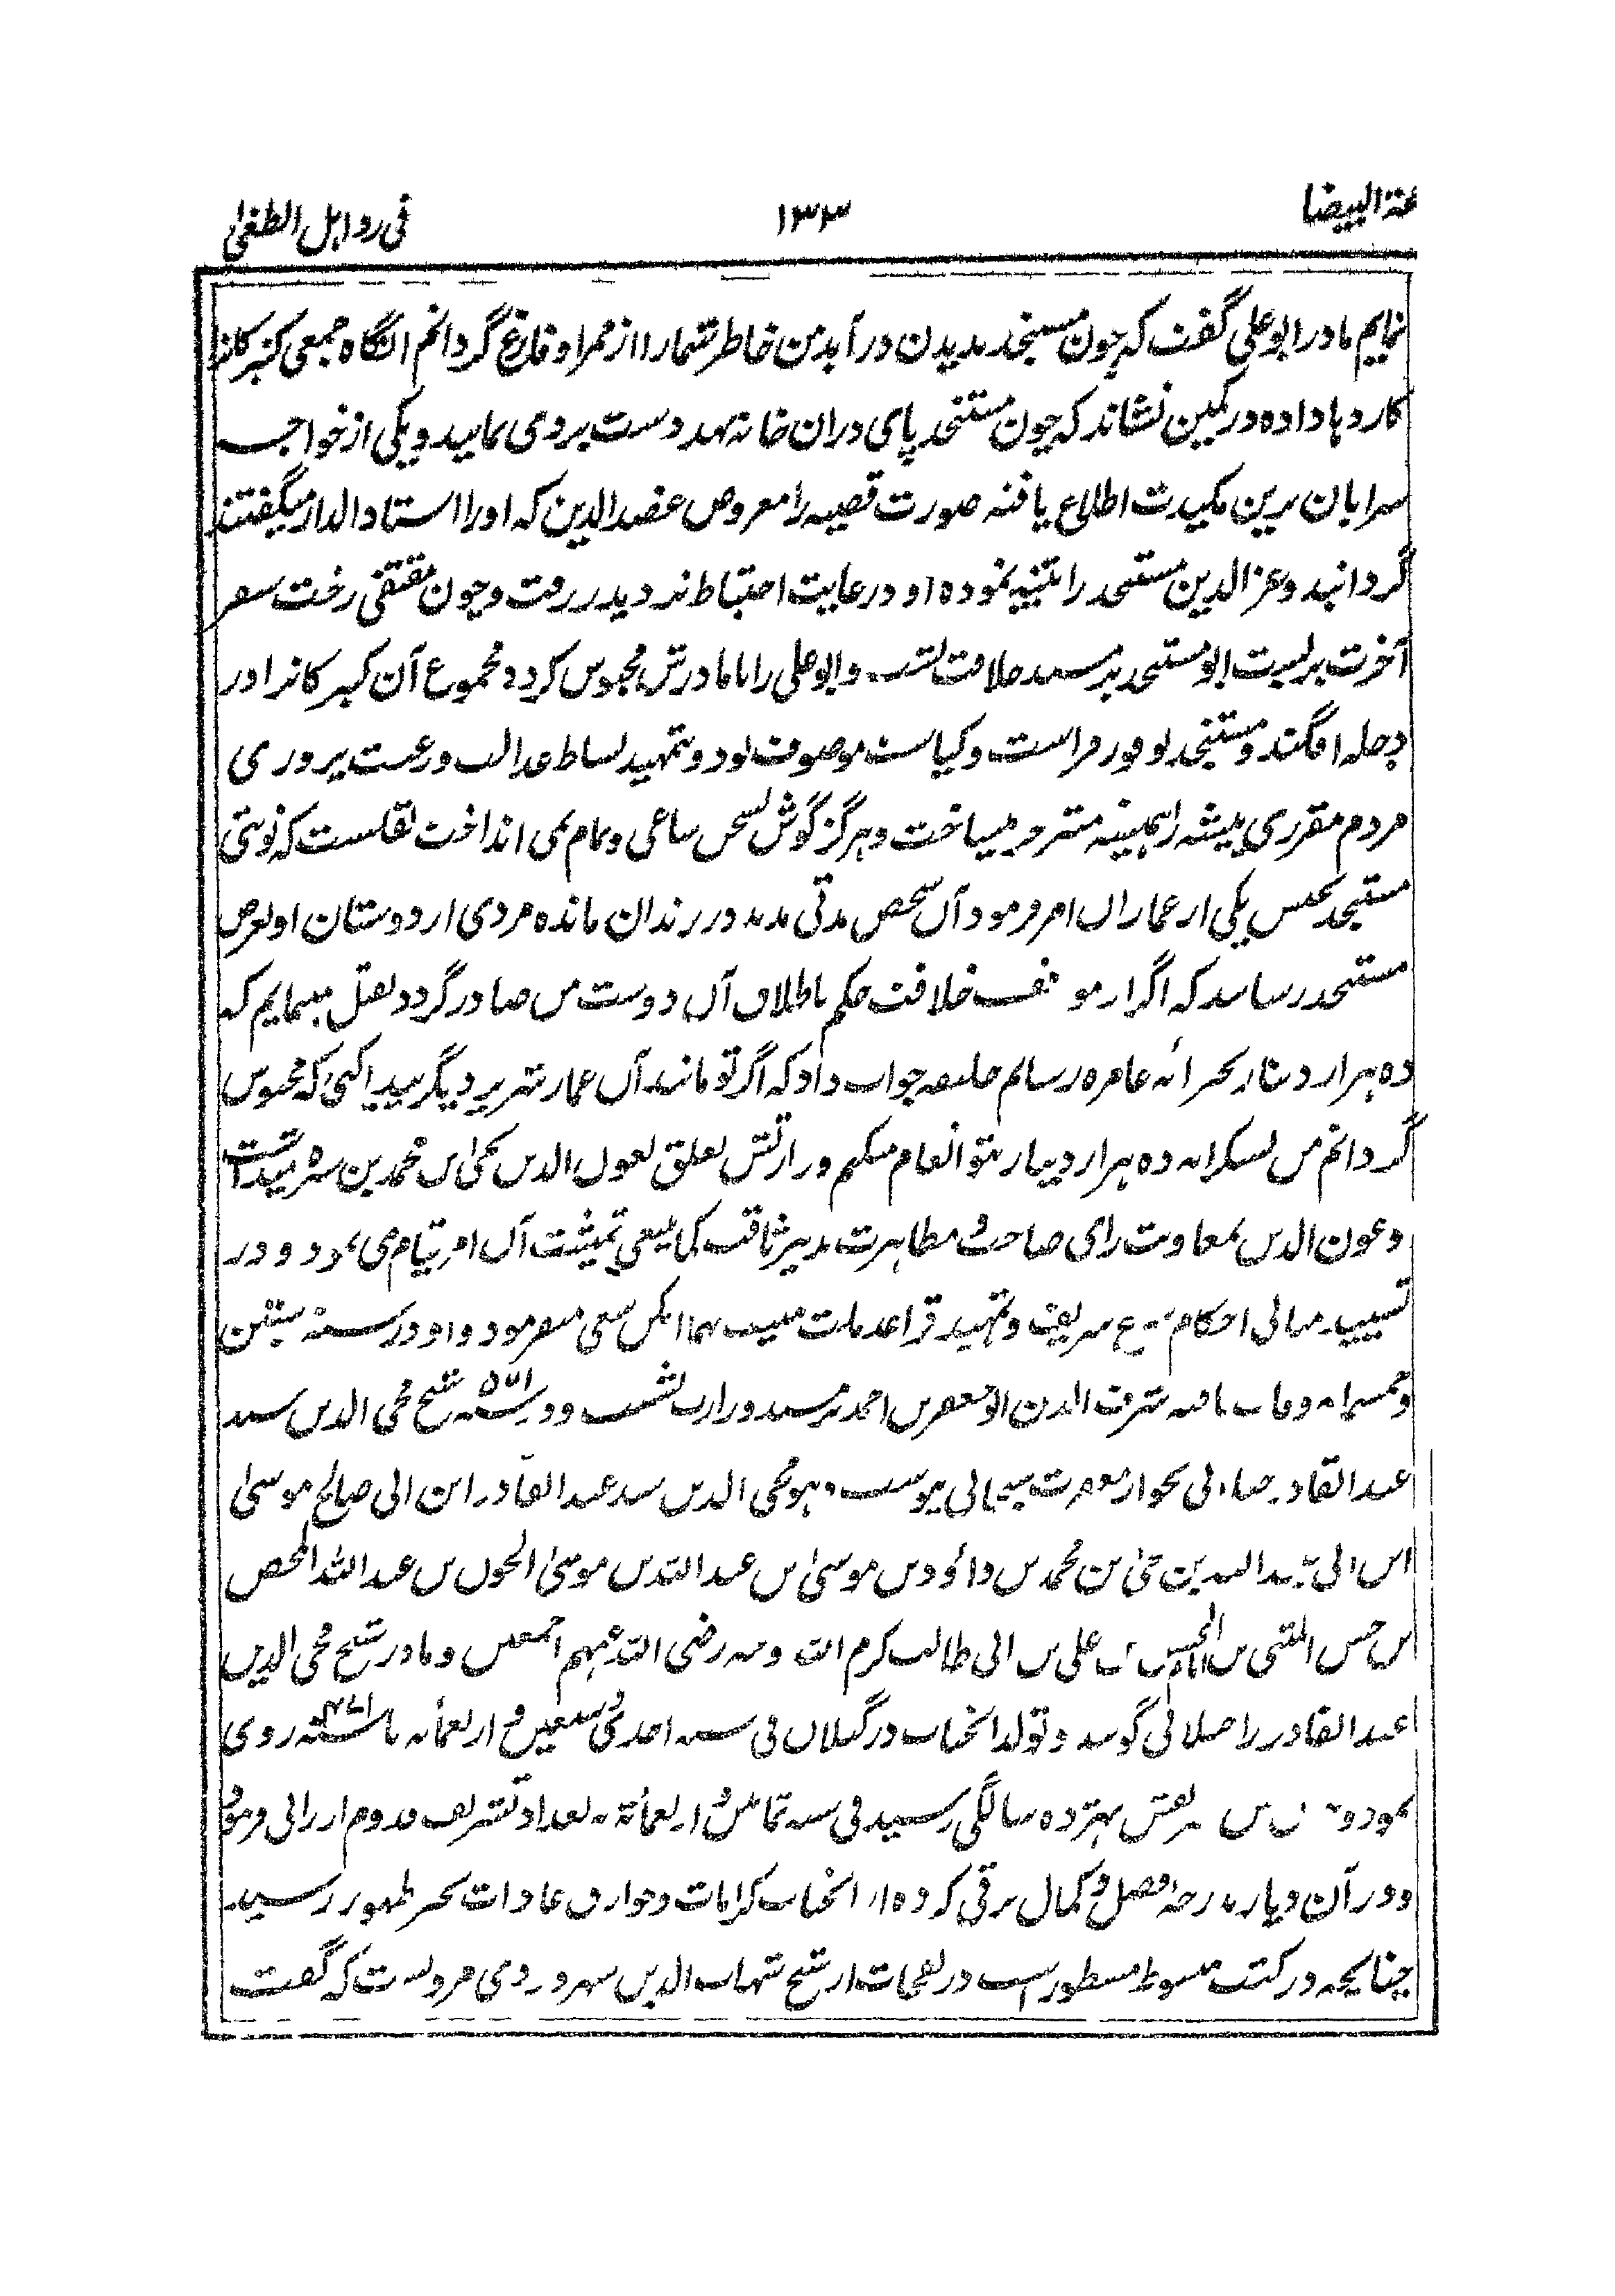 عة البیضا ۱۳۳ فی رد اہل الطغی
نمایم مادر ابو علی گفت که چون مستنجد بدیدن در آید من خاطر شما را از ممر او فارغ گردانم انگاه جمعی کنیزکانرا
کاردها داده در کمین نشاند که چون مستنجد پای دران خانه نهد دست بردی نمایند و یکی از خواجه
سرایان برین مکیدت اطلاع یافته صورت قصیه را معروض عضد الدین که او را استاد الدار میگفتند
گردانید و عز الدین مستنجد را تنبیه نموده او در عایت احتیاط نزد پدر رفت و چون مقتفی رخت سفر
آخرت بر بست ابو مستنجد بر مسند خلافت نشست و ابو علی را با مادرش محبوس کرد و مجموع آن کنیزکانرا در
دجله افگند و مستنجد بوفور فراست و کیاست موصوف بود و بتمهید بساط عدالت و رعیت پروری
مردم مقرری پیشه را همیشه میساخت و هرگز گوش بسخن ساعی و نمام نمی انداخت نقلست که نوبتی
مستنجد بحبس یکی از عمازان امر فرمود آن شخص مدتی مدید در زندان مانده مردی از دوستان او بعرض
مستنجد رسانید که اگر از خلافت حکم باطلاق آن دوست من صادر گردد تقبل مینمایم که
ده هزار دینار بخزانه عامره رسانم خلیفه جواب داد که اگر تو مانند آن عماز شریر دیگر پیدا کنی که محبوس
گردانم من بشکرانه ده هزار دینار بتو انعام میکنم وزارتش تعلق بعون الدین یحیی بن محمد بن داشت
و عون الدین بمعاونت رای صاحب و مظاهرت تدبیر ثاقب کما ینبغی بتمشیت آن امر قیام می نمود و در
تشیید مبانی احکام شرع شریف و تمهید قواعد ملت منیف مهما امکن سعی میفرمود و او در سنه ستین
و خمسمایه وفات یافته شرف الدین ابو جعفر بن احمد بر مسند وزارت نشست و در سنه ۵۷۱ شیخ محی الدین سید
عبد القادر جیلانی بجوار مغفرت سبحانی پیوست و هو محی الدین سید عبد القادر ابن ابی صالح موسی
ابن ابی عبد الله بن یحیی بن محمد بن داؤد بن موسی بن عبد الله بن موسی الجون بن عبد الله المحض
بن حسن المثنی بن الحسن بن علی بن ابی طالب کرم الله وجهه رضی الله عنهم اجمعین و مادر شیخ محی الدین
عبد القادر را جیلانی گویند و تولد انجناب در گیلان فی سنه احدی و سبعین و اربعمائه یا سنه ۴۷۱ روی
نمود و شریفش بهژده سالگی رسید فی سنه ثمان و اربعمائة به بغداد تشریف قدوم ارزانی فرمود
و در آن دیار بدرجه فضل و کمال ترقی کرده از انجناب کرامات و خوارق عادات بحیز ظهور رسید
چنانچه در کتب مبسوط مسطور است در نفحات از شیخ شهاب الدین سهروردی مرویست که گفت